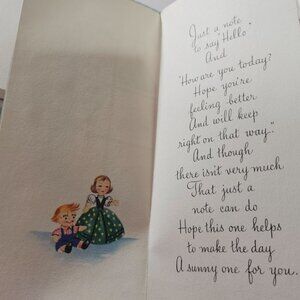 Just a note
to say "Hello"
And
"How are you today?
Hope you're
feeling better
And will keep
right on that way."
And though
there isn't very much
That just a
note can do
Hope this one helps
to make the day
A sunny one for you.